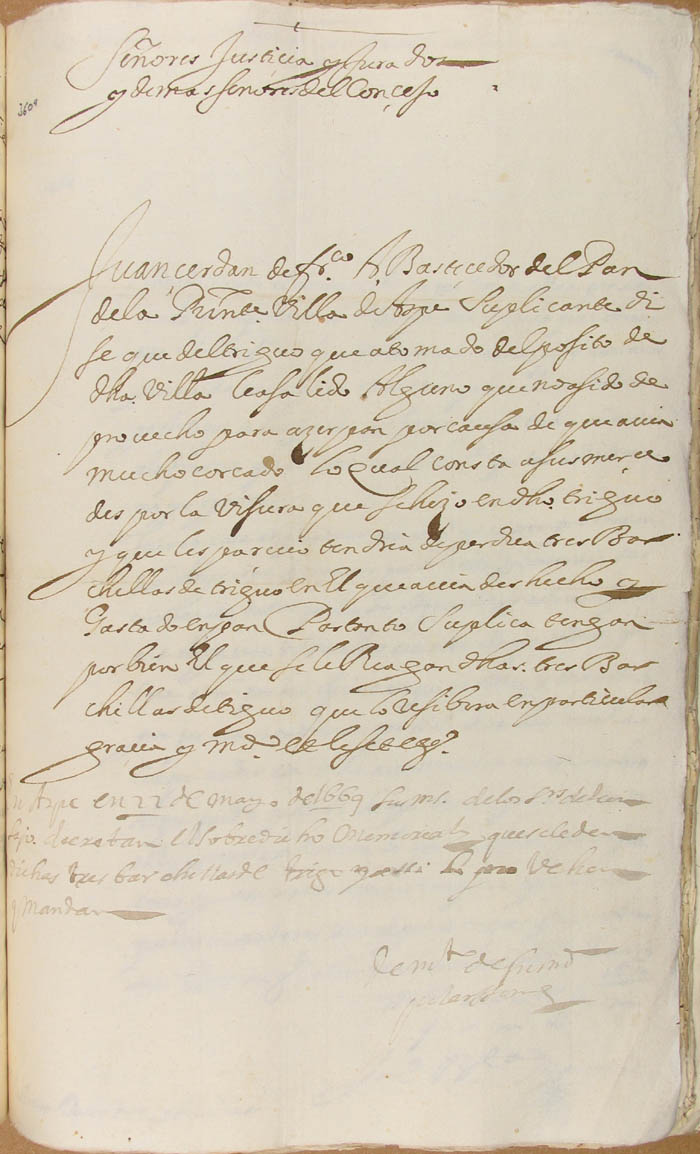 Señores Justicia y Jurados
y demas señores del Conçejo
Juan cerdan de fr.co Abastecedor del Pan
de la Pnte. Villa de Azpe Suplicante di
se que del triguo que a tomado del posito de
dha. Villa lea salido Alguno que no a sido de
provecho para azer pan por causa de que auia
mucho corcado lo qual consta a sus merce
des por la Visura que se hizo en dho. triguo
y que les parecio tendria de perdua tres Bar
chillas de triguo en El que auia deshecho y
Gastado en pan Por tanto Suplica tengan
por bien El que se le hagan dhas. tres Bar
chillas de triguo que lo resibira en particular
gracia y md.
En Azpe en 22 de mayo de 1669 sus ms. de los Sres. del con
sejo. decretan el sobredicho Memorial que se le den
dichas tres barchillas de trigo y assi lo pro Vehen
y Mandan
De mt. de su md